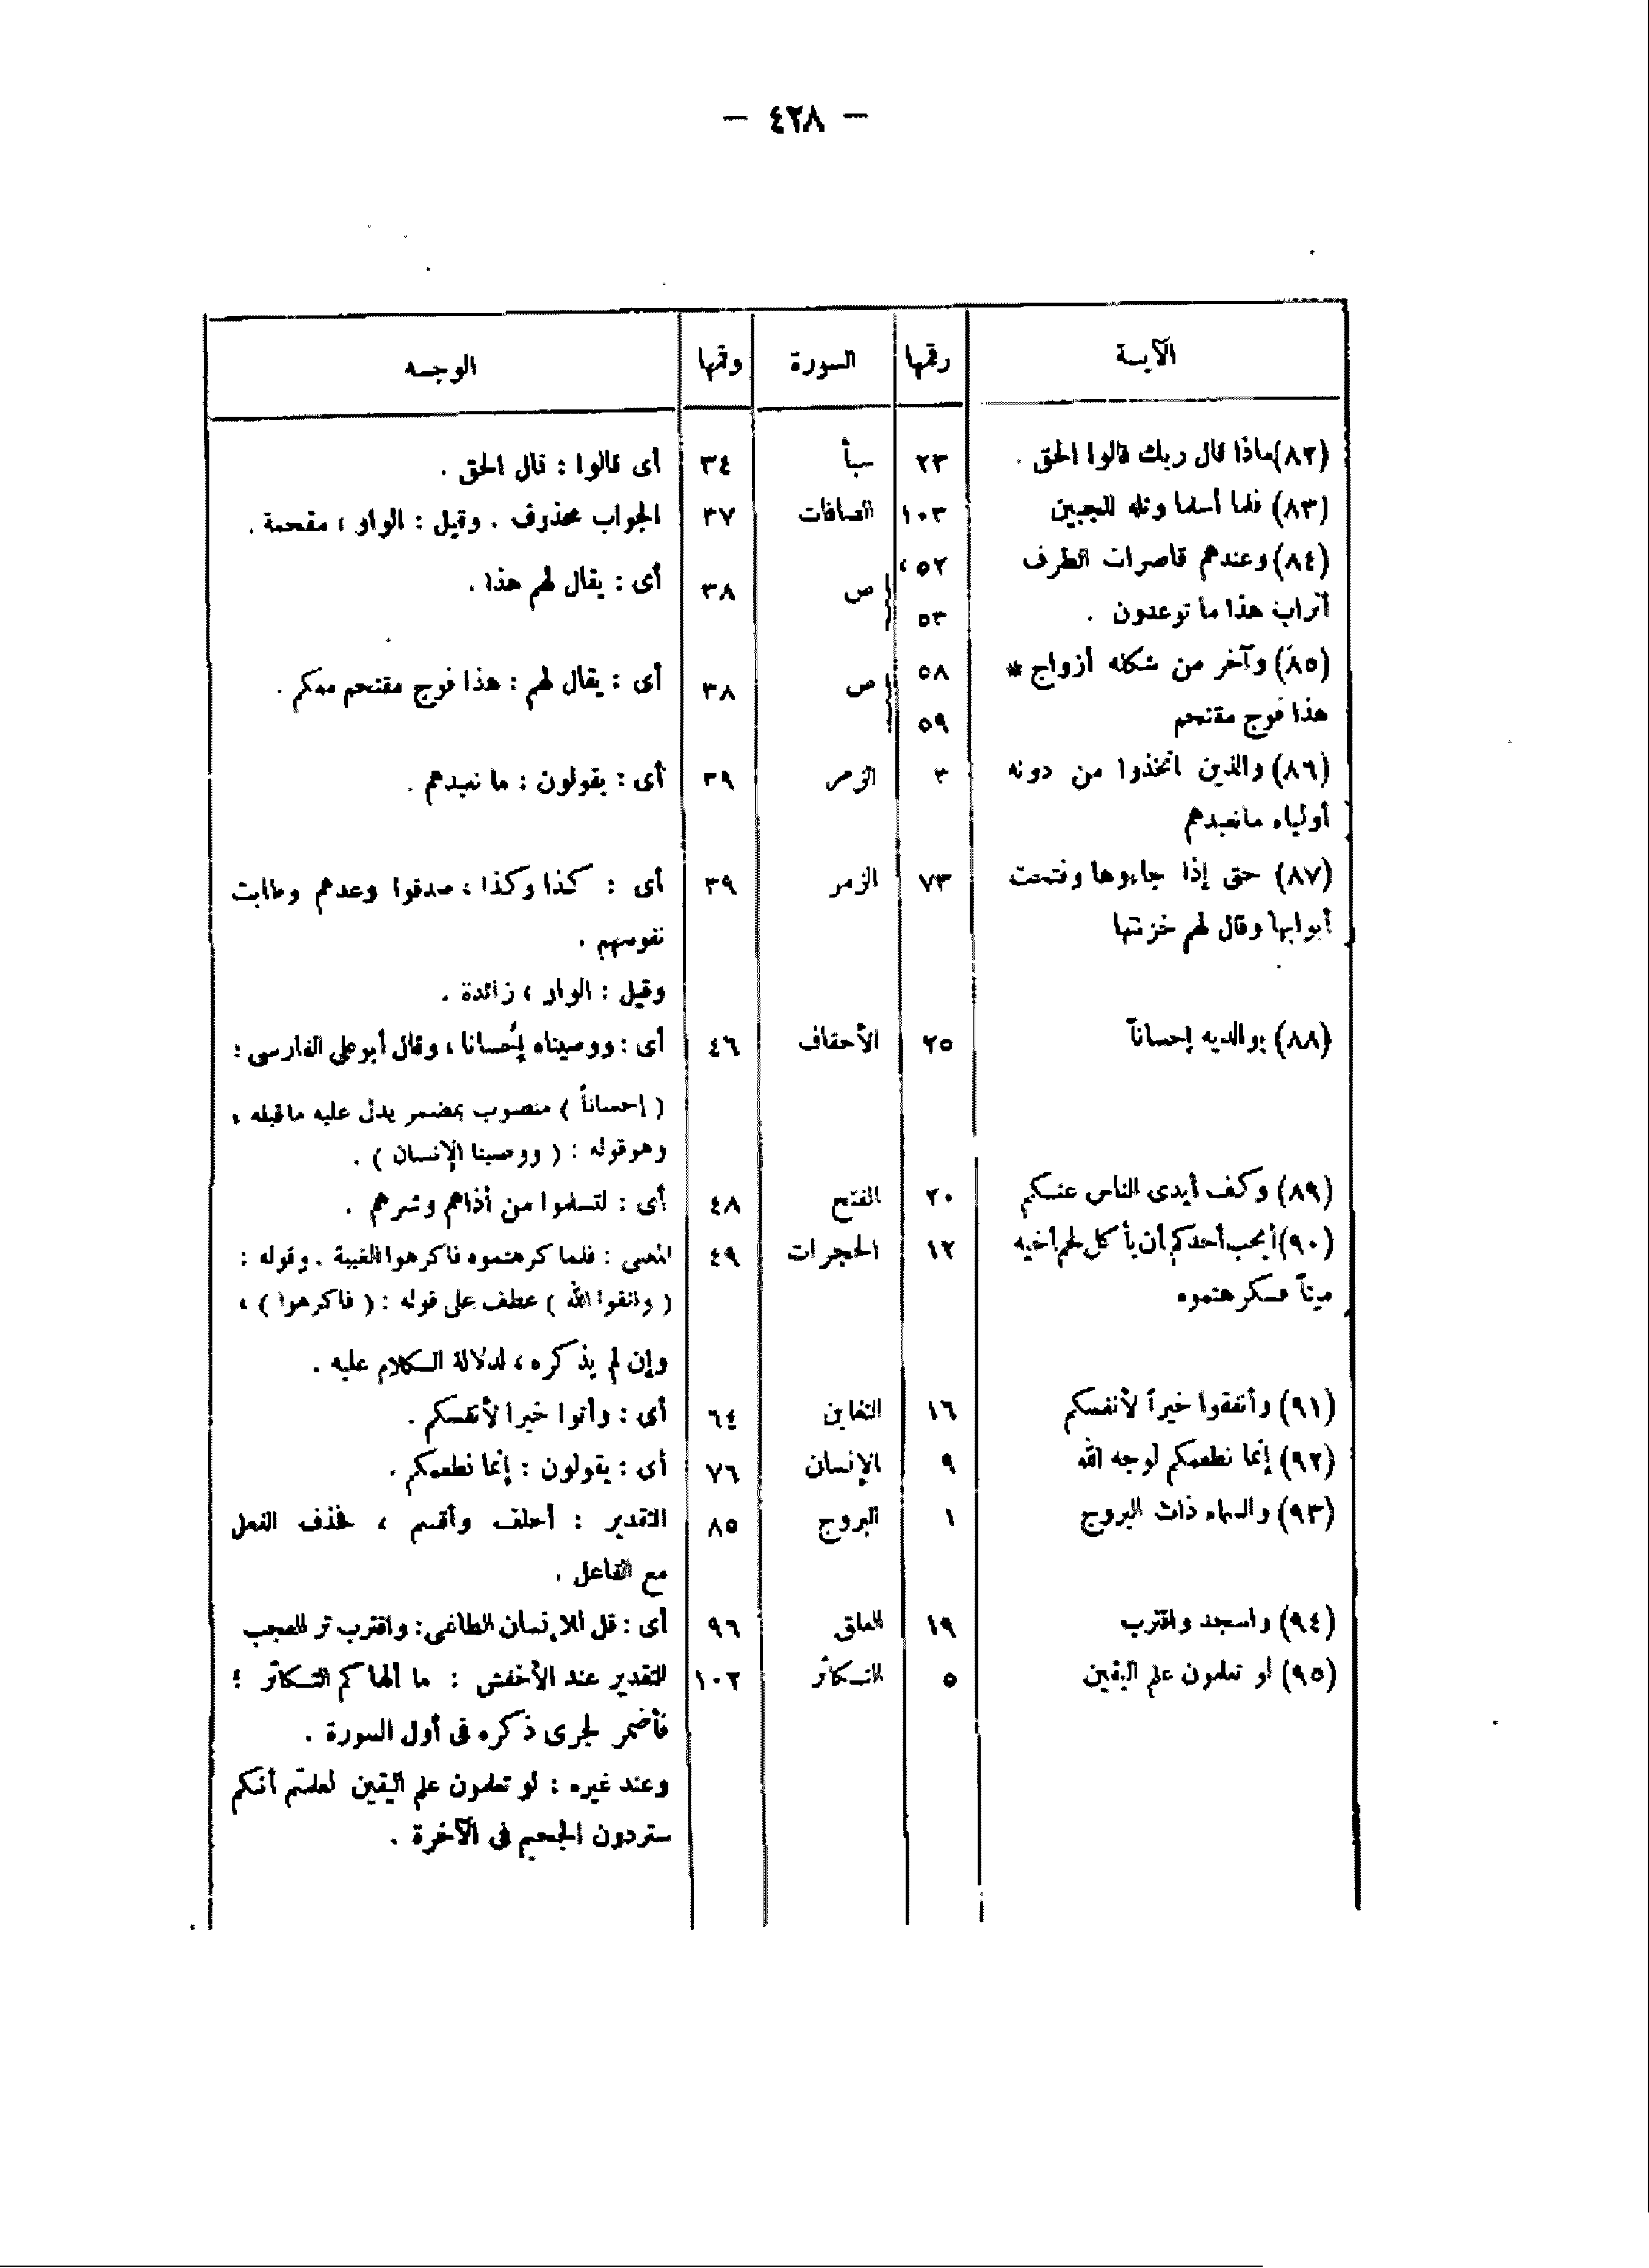 — ٤٢٨ —
الآيسة | رقمها | السورة | رقمها | الوجسه
(٨٢) ماذا قال ربك قالوا الحق . | ٢٣ | سبأ | ٣٤ | أى قالوا : قال الحق .
(٨٣) فلما أسلما وتله للجبين | ١٠٣ | الصافات | ٣٧ | الجواب محذوف . وقيل : الواو ، مقحمة .
(٨٤) وعندهم قاصرات الطرف | ٥٢ ، | ص | ٣٨ | أى : يقال لهم هذا .
أتراب هذا ما توعدون . | ٥٣
(٨٥) وآخر من شكله أزواج * | ٥٨ | ص | ٣٨ | أى : يقال لهم : هذا فوج مقتحم معكم .
هذا فوج مقتحم | ٥٩
(٨٦) والذين اتخذوا من دونه | ٣ | الزمر | ٣٩ | أى : يقولون : ما نعبدهم .
أولياء مانعبدهم
(٨٧) حتى إذا جاءوها وفتحت | ٧٣ | الزمر | ٣٩ | أى : كذا وكذا ، صدقوا وعدهم وطابت
أبوابها وقال لهم خزنتها | نفوسهم .
وقيل : الواو ، زائدة .
(٨٨) بوالديه إحساناً | ٢٥ | الأحقاف | ٤٦ | أى : ووصيناه إحسانا ، وقال أبو على الفارسى :
( إحساناً ) منصوب بمضمر يدل عليه ماقبله ،
وهوقوله : ( ووصينا الإنسان ) .
(٨٩) وكف أيدى الناس عنسكم | ٢٠ | الفتح | ٤٨ | أى : لتسلموا من أذاهم وشرهم .
(٩٠) أيحب أحدكم أن يأكل لحم أخيه | ١٢ | الحجرات | ٤٩ | المعنى : فلما كرهتموه فاكرهوا الغيبة . وقوله :
ميتاً فسكرهتموه | ( واتقوا الله ) عطف على قوله : ( فاكرهوا ) ،
وإن لم يذكره ، لدلالة السكلام عليه .
(٩١) وأنفقوا خيراً لأنفسكم | ١٦ | التغابن | ٦٤ | أى : وأتوا خيرا لأنفسكم .
(٩٢) إنما نطعمكم لوجه الله | ٩ | الإنسان | ٧٦ | أى : يقولون : إنما نطعمكم .
(٩٣) والسماء ذات البروج | ١ | البروج | ٨٥ | التقدير : أحلف وأقسم ، فحذف الفعل
مع الفاعل .
(٩٤) واسجد واقترب | ١٩ | العلق | ٩٦ | أى : قل للإنسان الطاغى : واقترب تر العجب
(٩٥) لو تعلمون علم اليقين | ٥ | التسكاثر | ١٠٢ | التقدير عند الأخفش : ما ألهاكم التسكاثر ؛
فأضمر لجرى ذكره فى أول السورة .
وعند غيره : لو تعلمون علم اليقين لعلمتم أنكم
ستردون الجحيم فى الآخرة .